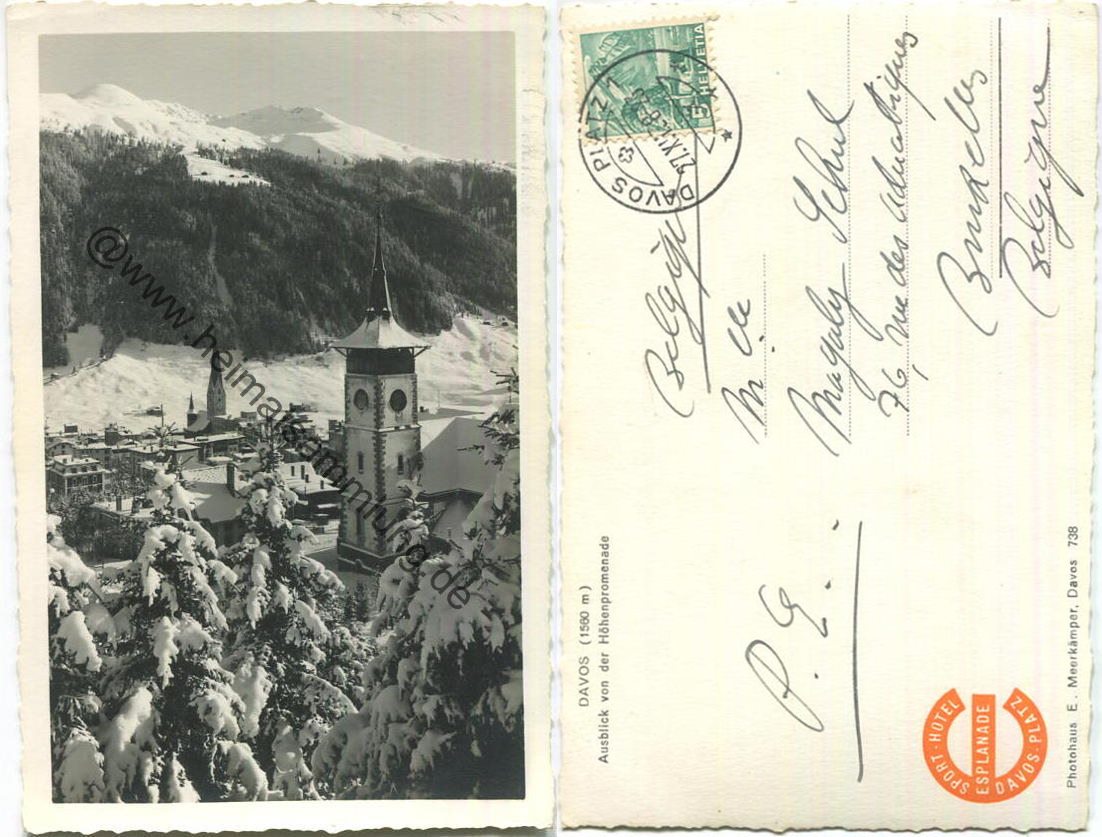 @www.heimatsammlung.de
HELVETIA
5
DAVOS PLATZ
Belgique
Mlle
Magaly
76, rue des
Bruxelles
Belgique
P. E.
DAVOS (1560 m)
Ausblick von der Höhenpromenade
SPORT-HOTEL
ESPLANADE
DAVOS-PLATZ
Photohaus E. Meerkämper, Davos 738